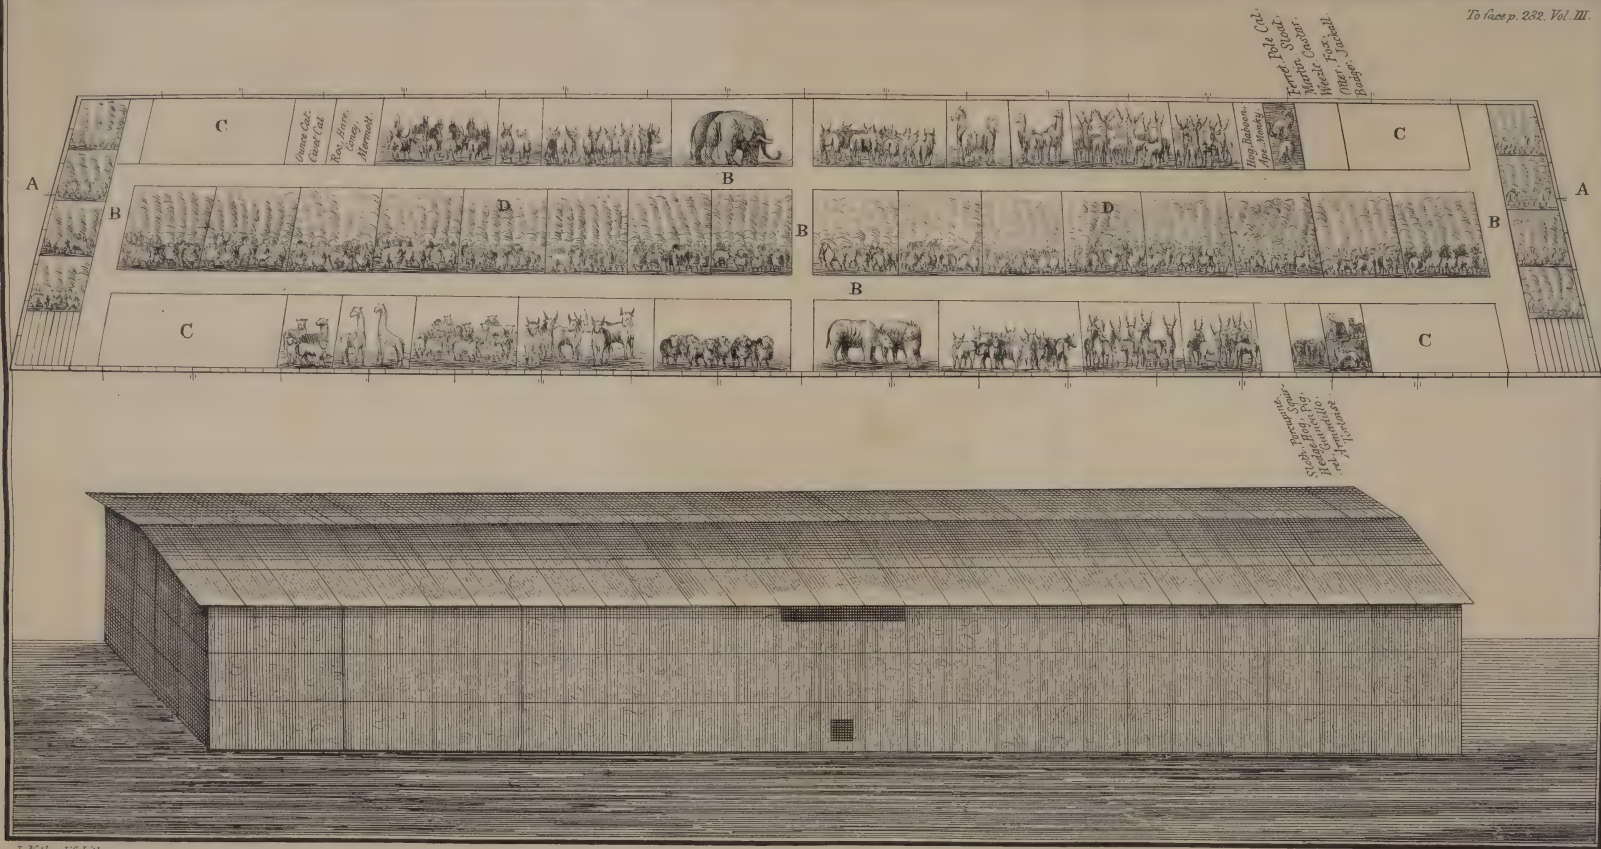 To face p. 232. Vol. III.
Ferret Pole Cat,
Stoat,
Martin Castar,
Weezle Fox,
Otter, Jackall
Badger
C
Ounce Cat.
Civet Cat
Roe, Hare,
Coney,
Marmott
Hog, Baboon,
Ape, Monky,
C
A
B
B
D
B
D
B
A
B
C
C
Sloth, Porcupine,
Hedge-Hog, Squir-
rel, Guinea Pig,
Armadillo,
Tortoise